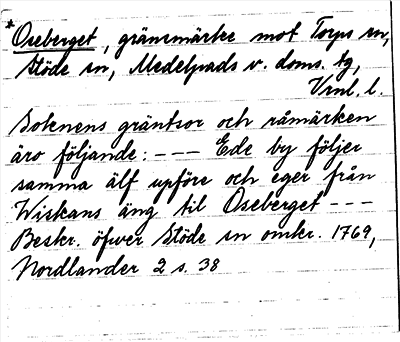 *Oseberget, gränsmärke mot Torps sn,
Stöde sn, Medelpads v. doms. tg,
Vrnl. l.
Sokenens gräntsor och råmärken
äro följande: --- Ede by följer
samma älf upföre och eger från
Wiskans äng til Oseberget ---
Beskr. öfwer Stöde sn omkr. 1769,
Nordlander 2 s. 38